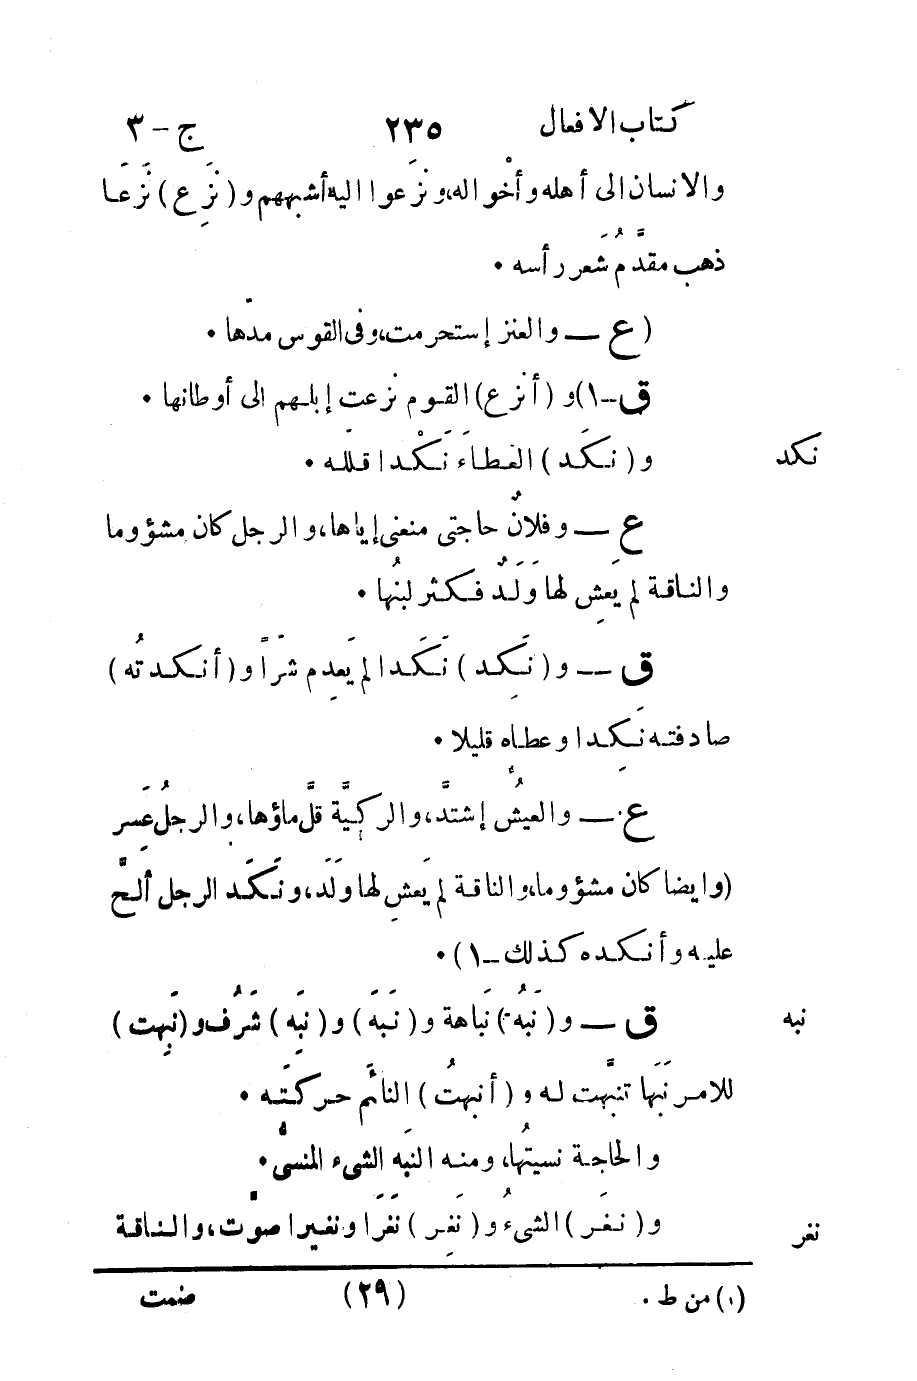 كتاب الافعال ٢٣٥ ج-٣
والانسان الى أهله وأخْواله، ونزَعوا اليه أشبههم و(نَزِع) نَزَعَا
ذهب مقدَّمُ شَعر رأسه •
(ع — والعنز إستحرمت، وفى القوس مدّها •
ق-١) و(أنزع) القوم نزعت إبلهم الى أوطانها •
نكد و(نكَد) العطاءَ نَكْدا قلله •
ع — وفلانٌ حاجتى منعنى إياها، والرجل كان مشؤوما
والناقة لم يَعِش لها وَلَدٌ فكثر لبنُها •
ق — و(نَكِد) نَكَدا لم يَعدِم شرّاً و(أنكدتُه)
صادفته نَكِدا وعطاه قليلا •
ع — والعيشُ إشتدَّ، والركيَّة قلَّ ماؤها، والرجلُ عَسِر
(وايضا كان مشؤوما، والناقة لم يَعِش لها وَلَد، ونَكَد الرجل ألحَّ
عليه وأنكده كذلك -١) •
نبه ق — و(نَبُه) نَباهة و(نَبَه) و(نَبِه) شَرُف و(نَبِهت)
للامر نَبَها تنبَّهت له و(أنبهتُ) النائم حركتَه •
والحاجة نسيتُها، ومنه النَبَه الشىء المنسىُّ •
نفر و(نفَر) الشىءُ و(نَفِر) نَفَرا ونفيرا صوَّت، والناقة
(١) من ط • (٢٩) ضمت